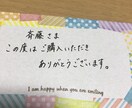 斉藤さま
この度はご購入いただき
ありがとうございます。
I am happy when you are smiling